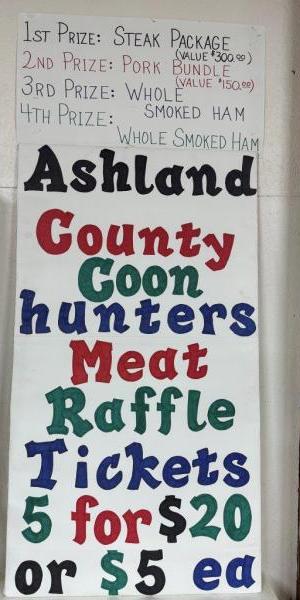 1st Prize: Steak Package
(Value $300.00)
2nd Prize: Pork Bundle
(Value $150.00)
3rd Prize: Whole
Smoked Ham
4th Prize:
Whole Smoked Ham
Ashland
County
Coon
hunters
Meat
Raffle
Tickets
5 for $20
or $5 ea